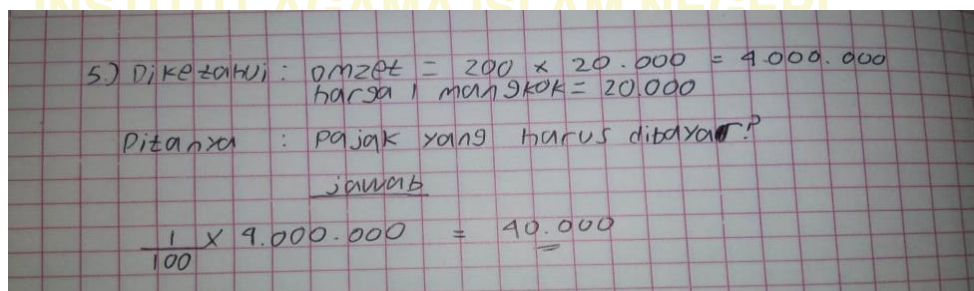 INSTITUT AGAMA ISLAM NEGERI
5.) Diketahui : omzet = 200 x 20.000 = 4.000.000
harga 1 mangkok = 20.000
Ditanya : pajak yang harus dibayar?
jawab
1/100 x 4.000.000 = 40.000